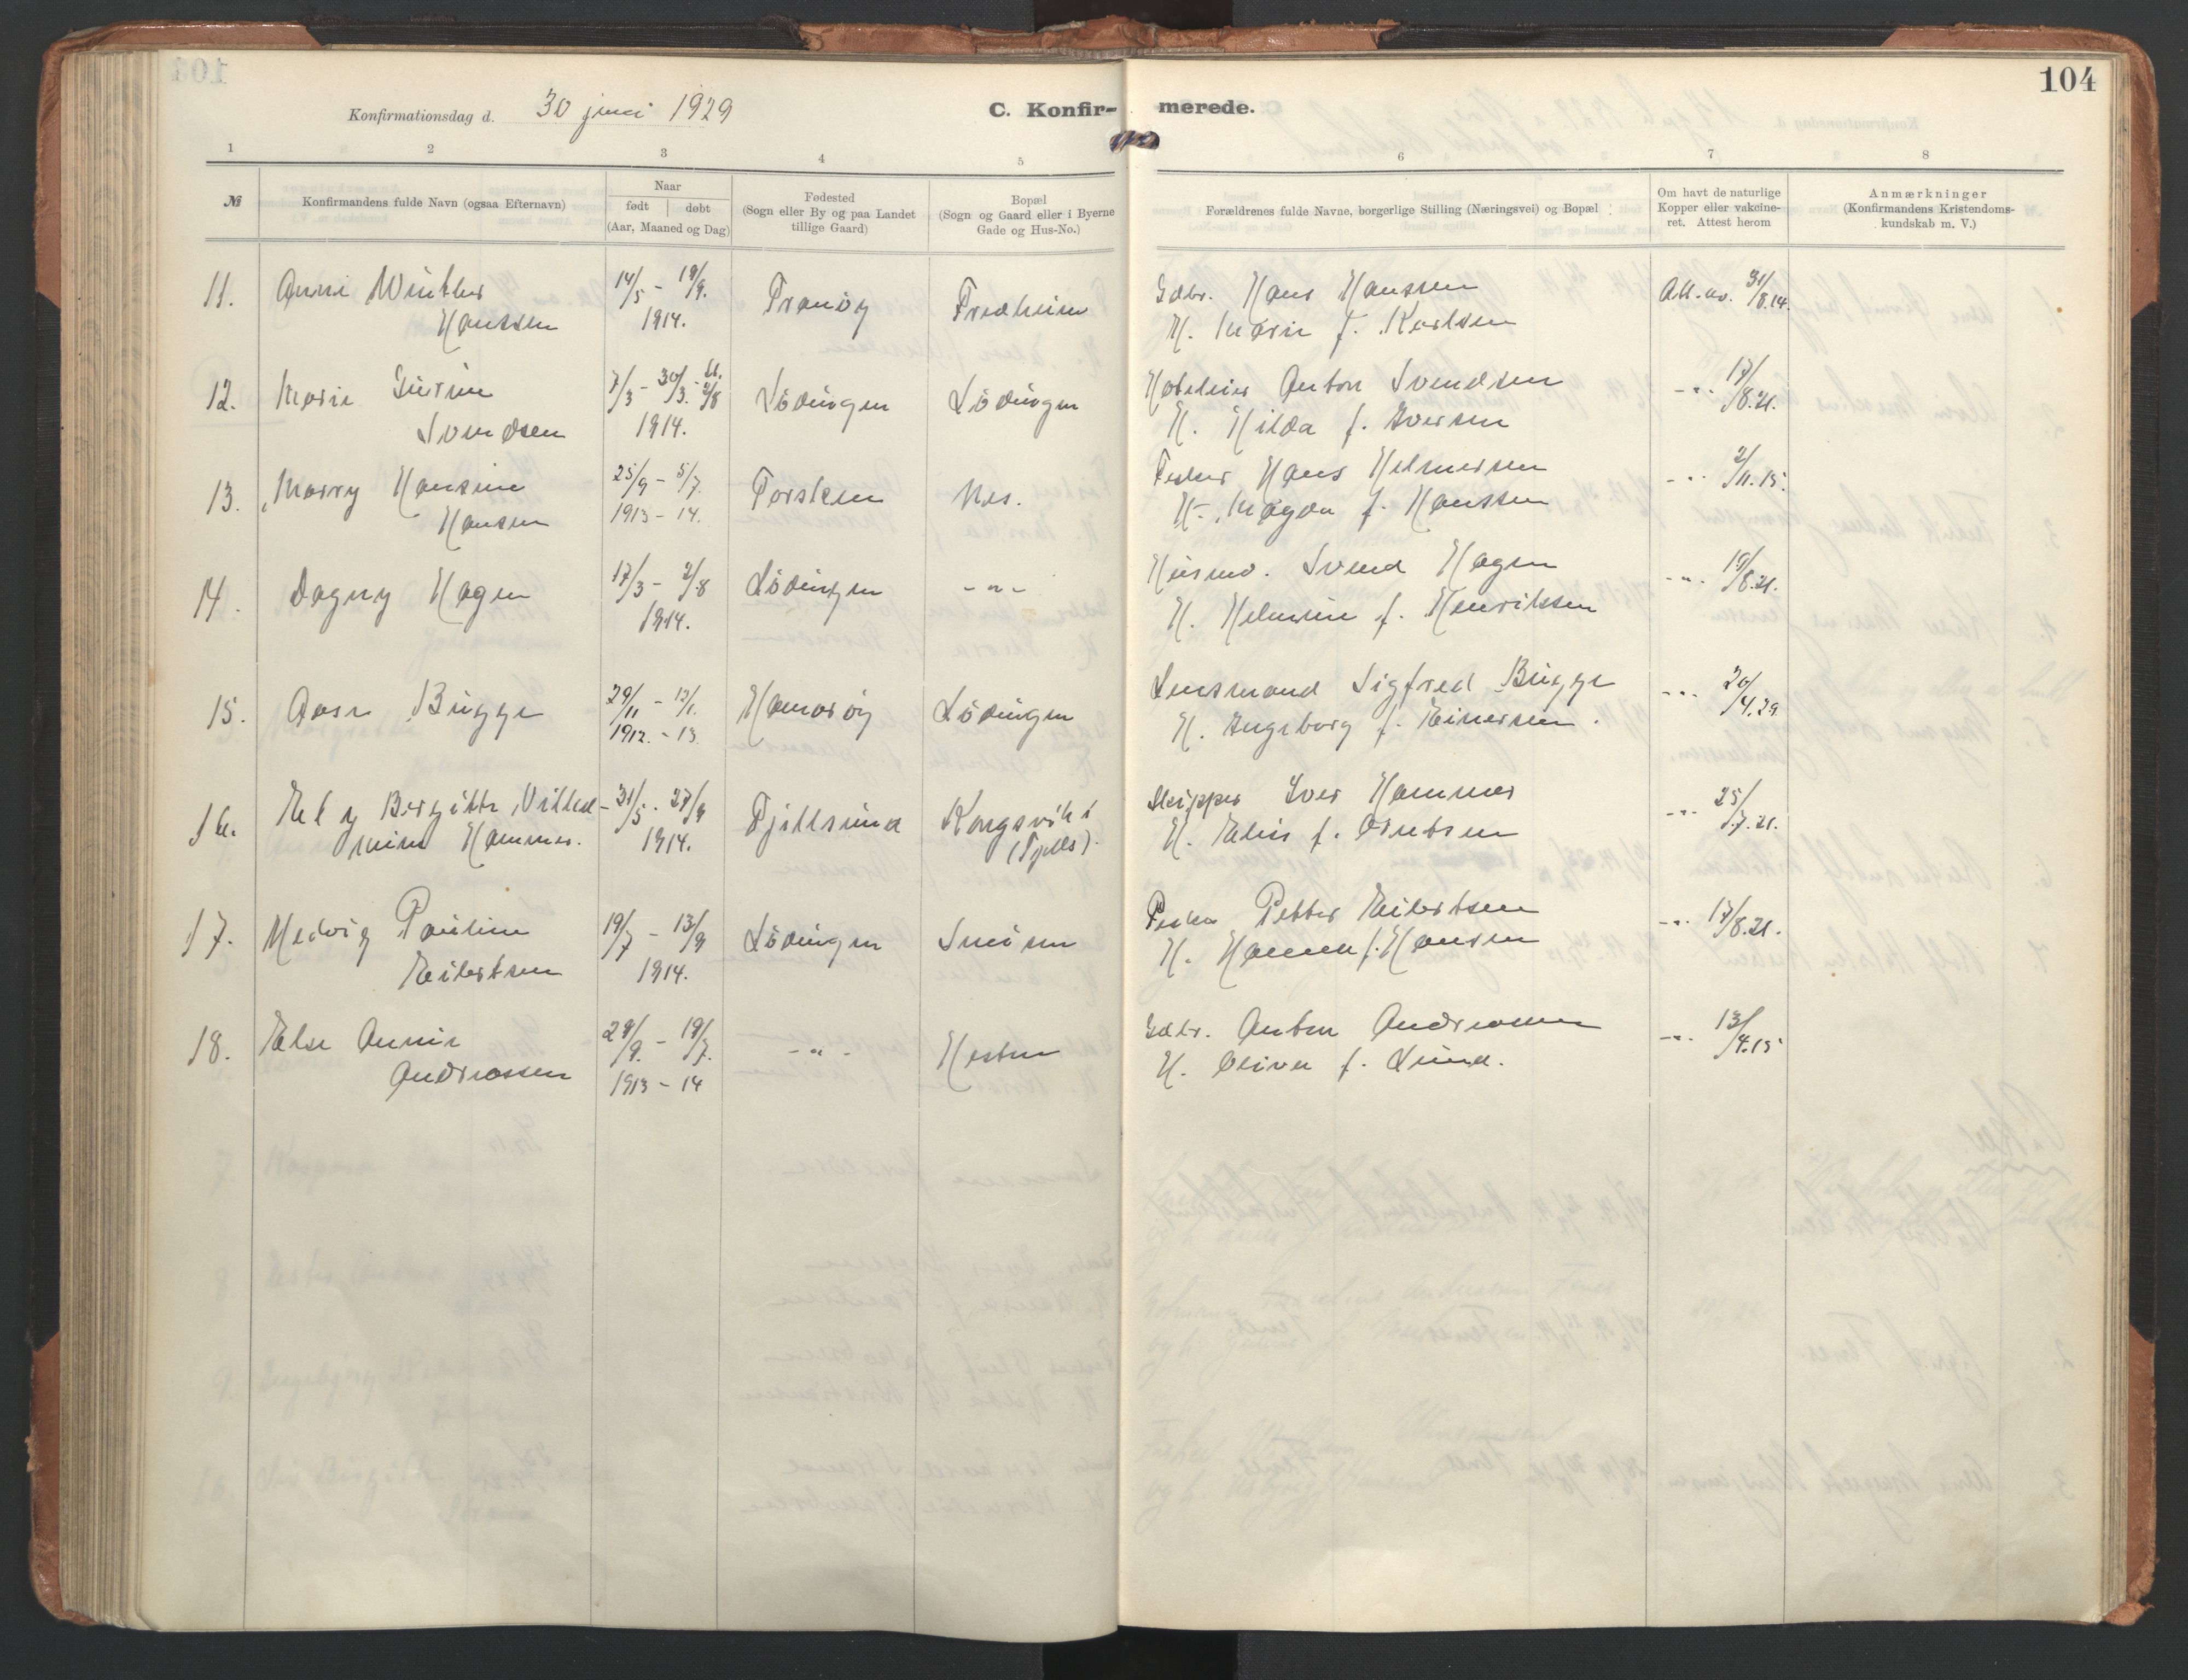 104
Konfirmationsdag d. 30 juni 1929
C. Konfir- merede.
1 2 3 4 5 6 7 8
№
Konfirmandens fulde Navn (ogsaa Efternavn)
Naar
født | døbt
(Aar, Maaned og Dag)
Fødested
(Sogn eller By og paa Landet
tillige Gaard)
Bopæl
(Sogn og Gaard eller i Byerne
Gade og Hus-No.)
Forældrenes fulde Navne, borgerlige Stilling (Næringsvei) og Bopæl
Om havt de naturlige
Kopper eller vakcine-
ret. Attest herom
Anmærkninger
(Konfirmandens Kristendoms-
kundskab m. V.)
11. Anni Winther 14/5 - 19/9. Tranöy Fredheim Gdbr. Hans Hanssen Att. av. 31/8.14.
Hanssen 1914. H. Marie f. Karlsen
12. Marie Gurine 7/3 - 30/3. - 2/8 Lödingen Lödingen Hotelier Anton Svendsen -"- 17/8.21.
Svendsen 1914. H. Hilda f. Iversen
13. Marry Hansine 25/9 - 5/7. Torsken Nes. Fisker Hans Helmersen -"- 2/11.15.
Hansen 1913 - 14. H. Magda f. Hanssen
14. Dagny Hagen 17/3 - 2/8 Lödingen -"- Husmd. Svend Hagen -"- 19/8.21.
1914. H. Helmine f. Henriksen
15. Aase Bugge 29/11 - 12/1. Hamaröy Lödingen Lensmand Sigfred Bugge -"- 20/4.29
1912. - 13. H. Ingeborg f. Einersen.
16. Ely Birgitte Vilhel- 31/5. 27/9 Tjeldsund Kongsvik i Skipper Iver Hammer -"- 25/7.21.
mine Hammer. 1914. (Tjelds). H. Elise f. Knutsen
17. Hedvig Pauline 19/7 - 13/9 Lödingen Fisker Petter Eilertsen -"- 17/8.21.
Eilertsen 1914. H. Hanna f. Hansen
18. Else Annie 29/9. - 19/7. -"- Hestun Gdbr. Anton Andreassen -"- 13/4.15
Andreassen 1913 - 14 H. Oliva f. Lund.